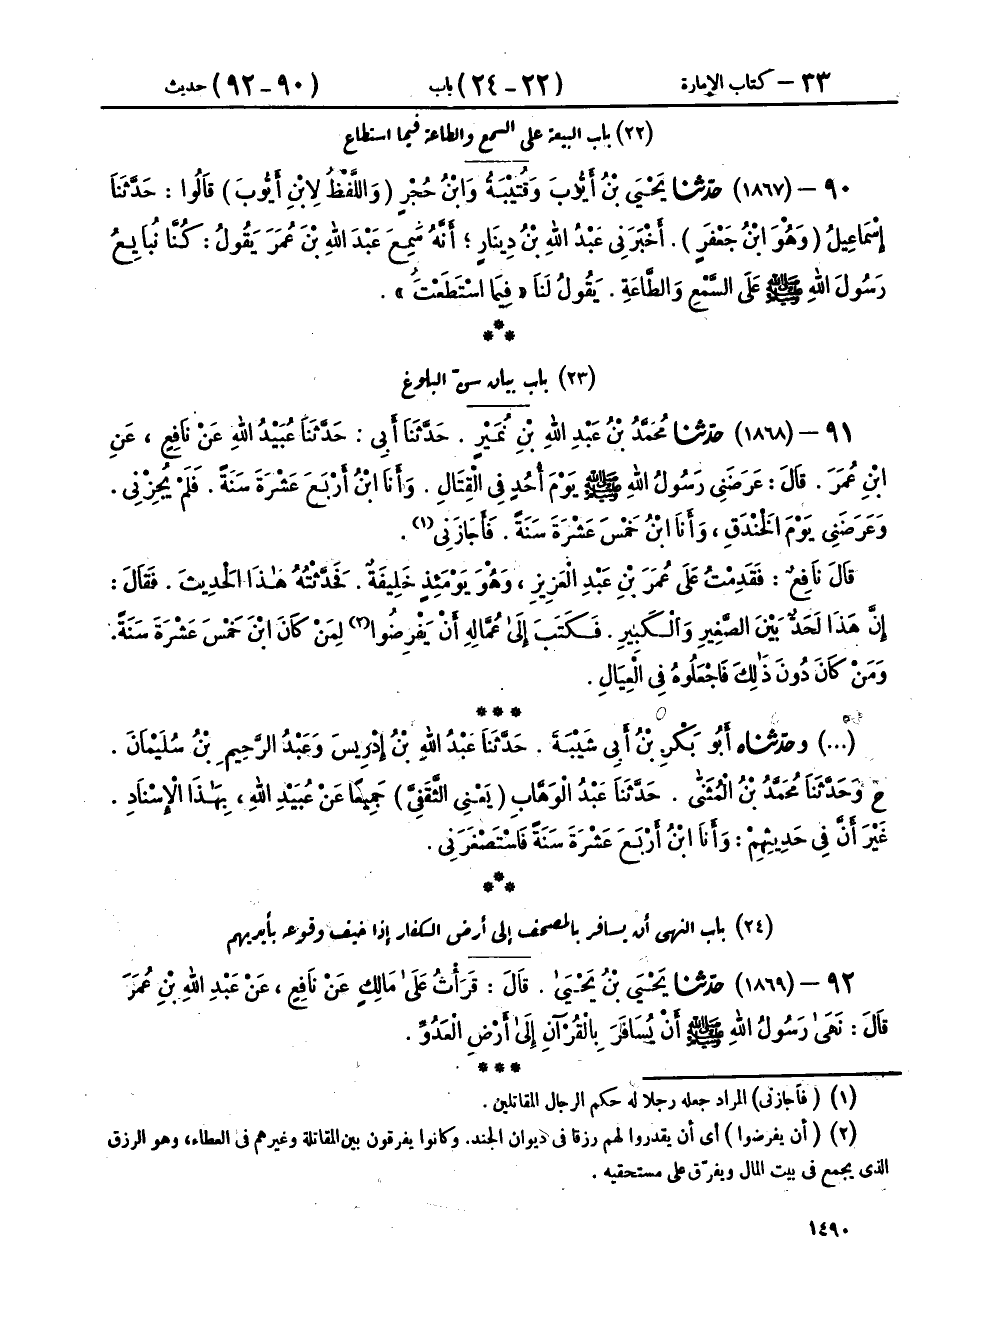 ٣٣ – كتاب الإمارة (٢٢ – ٢٤) باب (٩٠ – ٩٢) حديث
(٢٢) باب البيعة على السمع والطاعة فيما استطاع
٩٠ – (١٨٦٧) حَدَّثَنَا يَحْيَى بْنُ أَيُّوبَ وَقُتَيْبَةُ وَابْنُ حُجْرٍ (وَاللَّفْظُ لِابْنِ أَيُّوبَ) قَالُوا : حَدَّثَنَا
إِسْمَاعِيلُ (وَهُوَ ابْنُ جَعْفَرٍ) . أَخْبَرَنِي عَبْدُ اللهِ بْنُ دِينَارٍ ؛ أَنَّهُ سَمِعَ عَبْدَ اللهِ بْنَ عُمَرَ يَقُولُ : كُنَّا نُبَايِعُ
رَسُولَ اللهِ ﷺ عَلَى السَّمْعِ وَالطَّاعَةِ . يَقُولُ لَنَا « فِيمَا اسْتَطَعْتَ » .
***
(٢٣) باب بيان سنّ البلوغ
٩١ – (١٨٦٨) حَدَّثَنَا مُحَمَّدُ بْنُ عَبْدِ اللهِ بْنِ نُمَيْرٍ . حَدَّثَنَا أَبِي : حَدَّثَنَا عُبَيْدُ اللهِ عَنْ نَافِعٍ ، عَنِ
ابْنِ عُمَرَ . قَالَ : عَرَضَنِي رَسُولُ اللهِ ﷺ يَوْمَ أُحُدٍ فِي الْقِتَالِ . وَأَنَا ابْنُ أَرْبَعَ عَشْرَةَ سَنَةً . فَلَمْ يُجِزْنِي .
وَعَرَضَنِي يَوْمَ الْخَنْدَقِ ، وَأَنَا ابْنُ خَمْسَ عَشْرَةَ سَنَةً . فَأَجَازَنِي (١) .
قَالَ نَافِعٌ : فَقَدِمْتُ عَلَى عُمَرَ بْنِ عَبْدِ الْعَزِيزِ ، وَهُوَ يَوْمَئِذٍ خَلِيفَةٌ . فَحَدَّثْتُهُ هَٰذَا الْحَدِيثَ . فَقَالَ :
إِنَّ هَذَا لَحَدٌّ بَيْنَ الصَّغِيرِ وَالْكَبِيرِ . فَكَتَبَ إِلَىٰ عُمَّالِهِ أَنْ يَفْرِضُوا (٢) لِمَنْ كَانَ ابْنَ خَمْسَ عَشْرَةَ سَنَةً .
وَمَنْ كَانَ دُونَ ذَٰلِكَ فَاجْعَلُوهُ فِي الْعِيَالِ .
***
(...) وحَدَّثَنَاه أَبُو بَكْرِ بْنُ أَبِي شَيْبَةَ . حَدَّثَنَا عَبْدُ اللهِ بْنُ إِدْرِيسَ وَعَبْدُ الرَّحِيمِ بْنُ سُلَيْمَانَ .
ح وَحَدَّثَنَا مُحَمَّدُ بْنُ الْمُثَنَّىٰ . حَدَّثَنَا عَبْدُ الْوَهَّابِ (يَعْنِي الثَّقَفِيَّ) جَمِيعًا عَنْ عُبَيْدِ اللهِ ، بِهَٰذَا الْإِسْنَادِ .
غَيْرَ أَنَّ فِي حَدِيثِهِمْ : وَأَنَا ابْنُ أَرْبَعَ عَشْرَةَ سَنَةً فَاسْتَصْغَرَنِي .
***
(٢٤) باب النهى أن يسافر بالمصحف إلى أرض الكفار إذا خيف وقوعه بأيديهم
٩٢ – (١٨٦٩) حَدَّثَنَا يَحْيَى بْنُ يَحْيَىٰ . قَالَ : قَرَأْتُ عَلَىٰ مَالِكٍ عَنْ نَافِعٍ ، عَنْ عَبْدِ اللهِ بْنِ عُمَرَ
قَالَ : نَهَىٰ رَسُولُ اللهِ ﷺ أَنْ يُسَافَرَ بِالْقُرْآنِ إِلَىٰ أَرْضِ الْعَدُوِّ .
***
(١) (فأجازنى) المراد جعله رجلا له حكم الرجال المقاتلين .
(٢) (أن يفرضوا) أى أن يقدروا لهم رزقا فى ديوان الجند. وكانوا يفرقون بين المقاتلة وغيرهم فى العطاء، وهو الرزق
الذى يجمع فى بيت المال ويفرّق على مستحقيه .
١٤٩٠